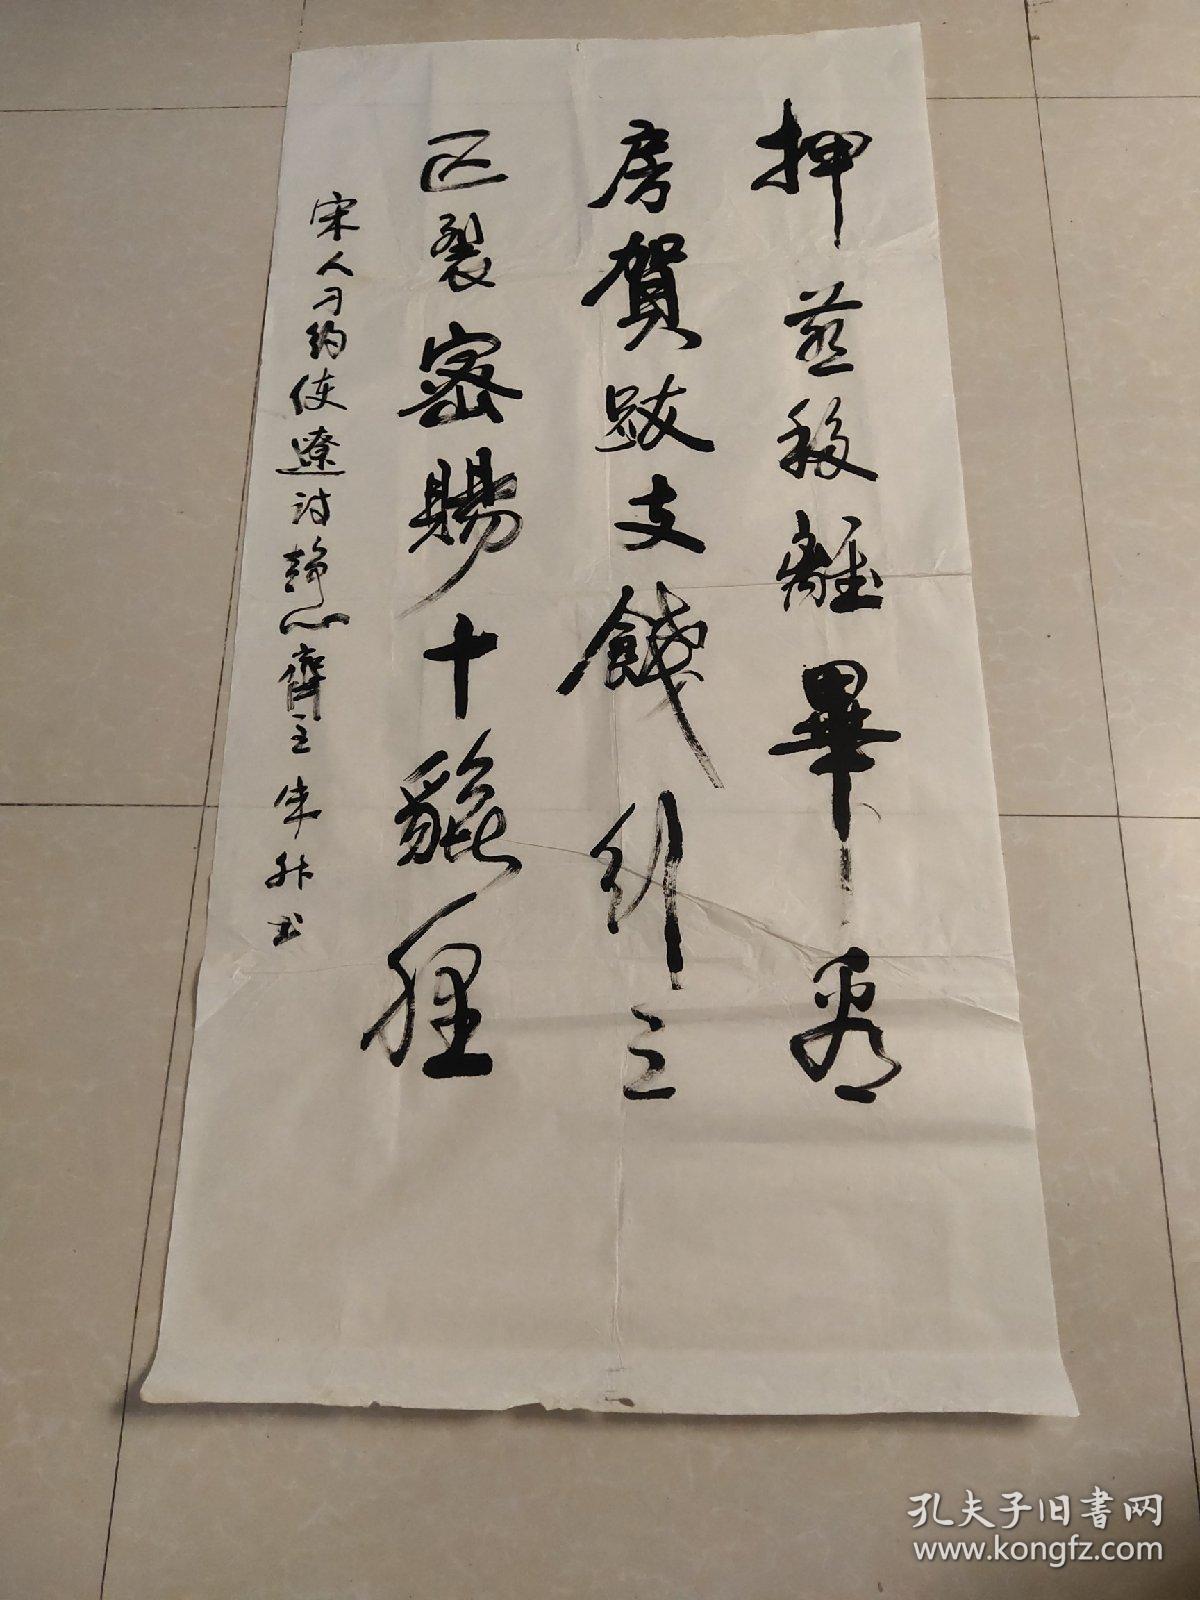 押燕移離畢看
房賀跋支餞行三
匹裂密賜十貔狸
宋人刁約使遼詩静心齋主朱书
孔夫子旧书网
www.kongfz.com